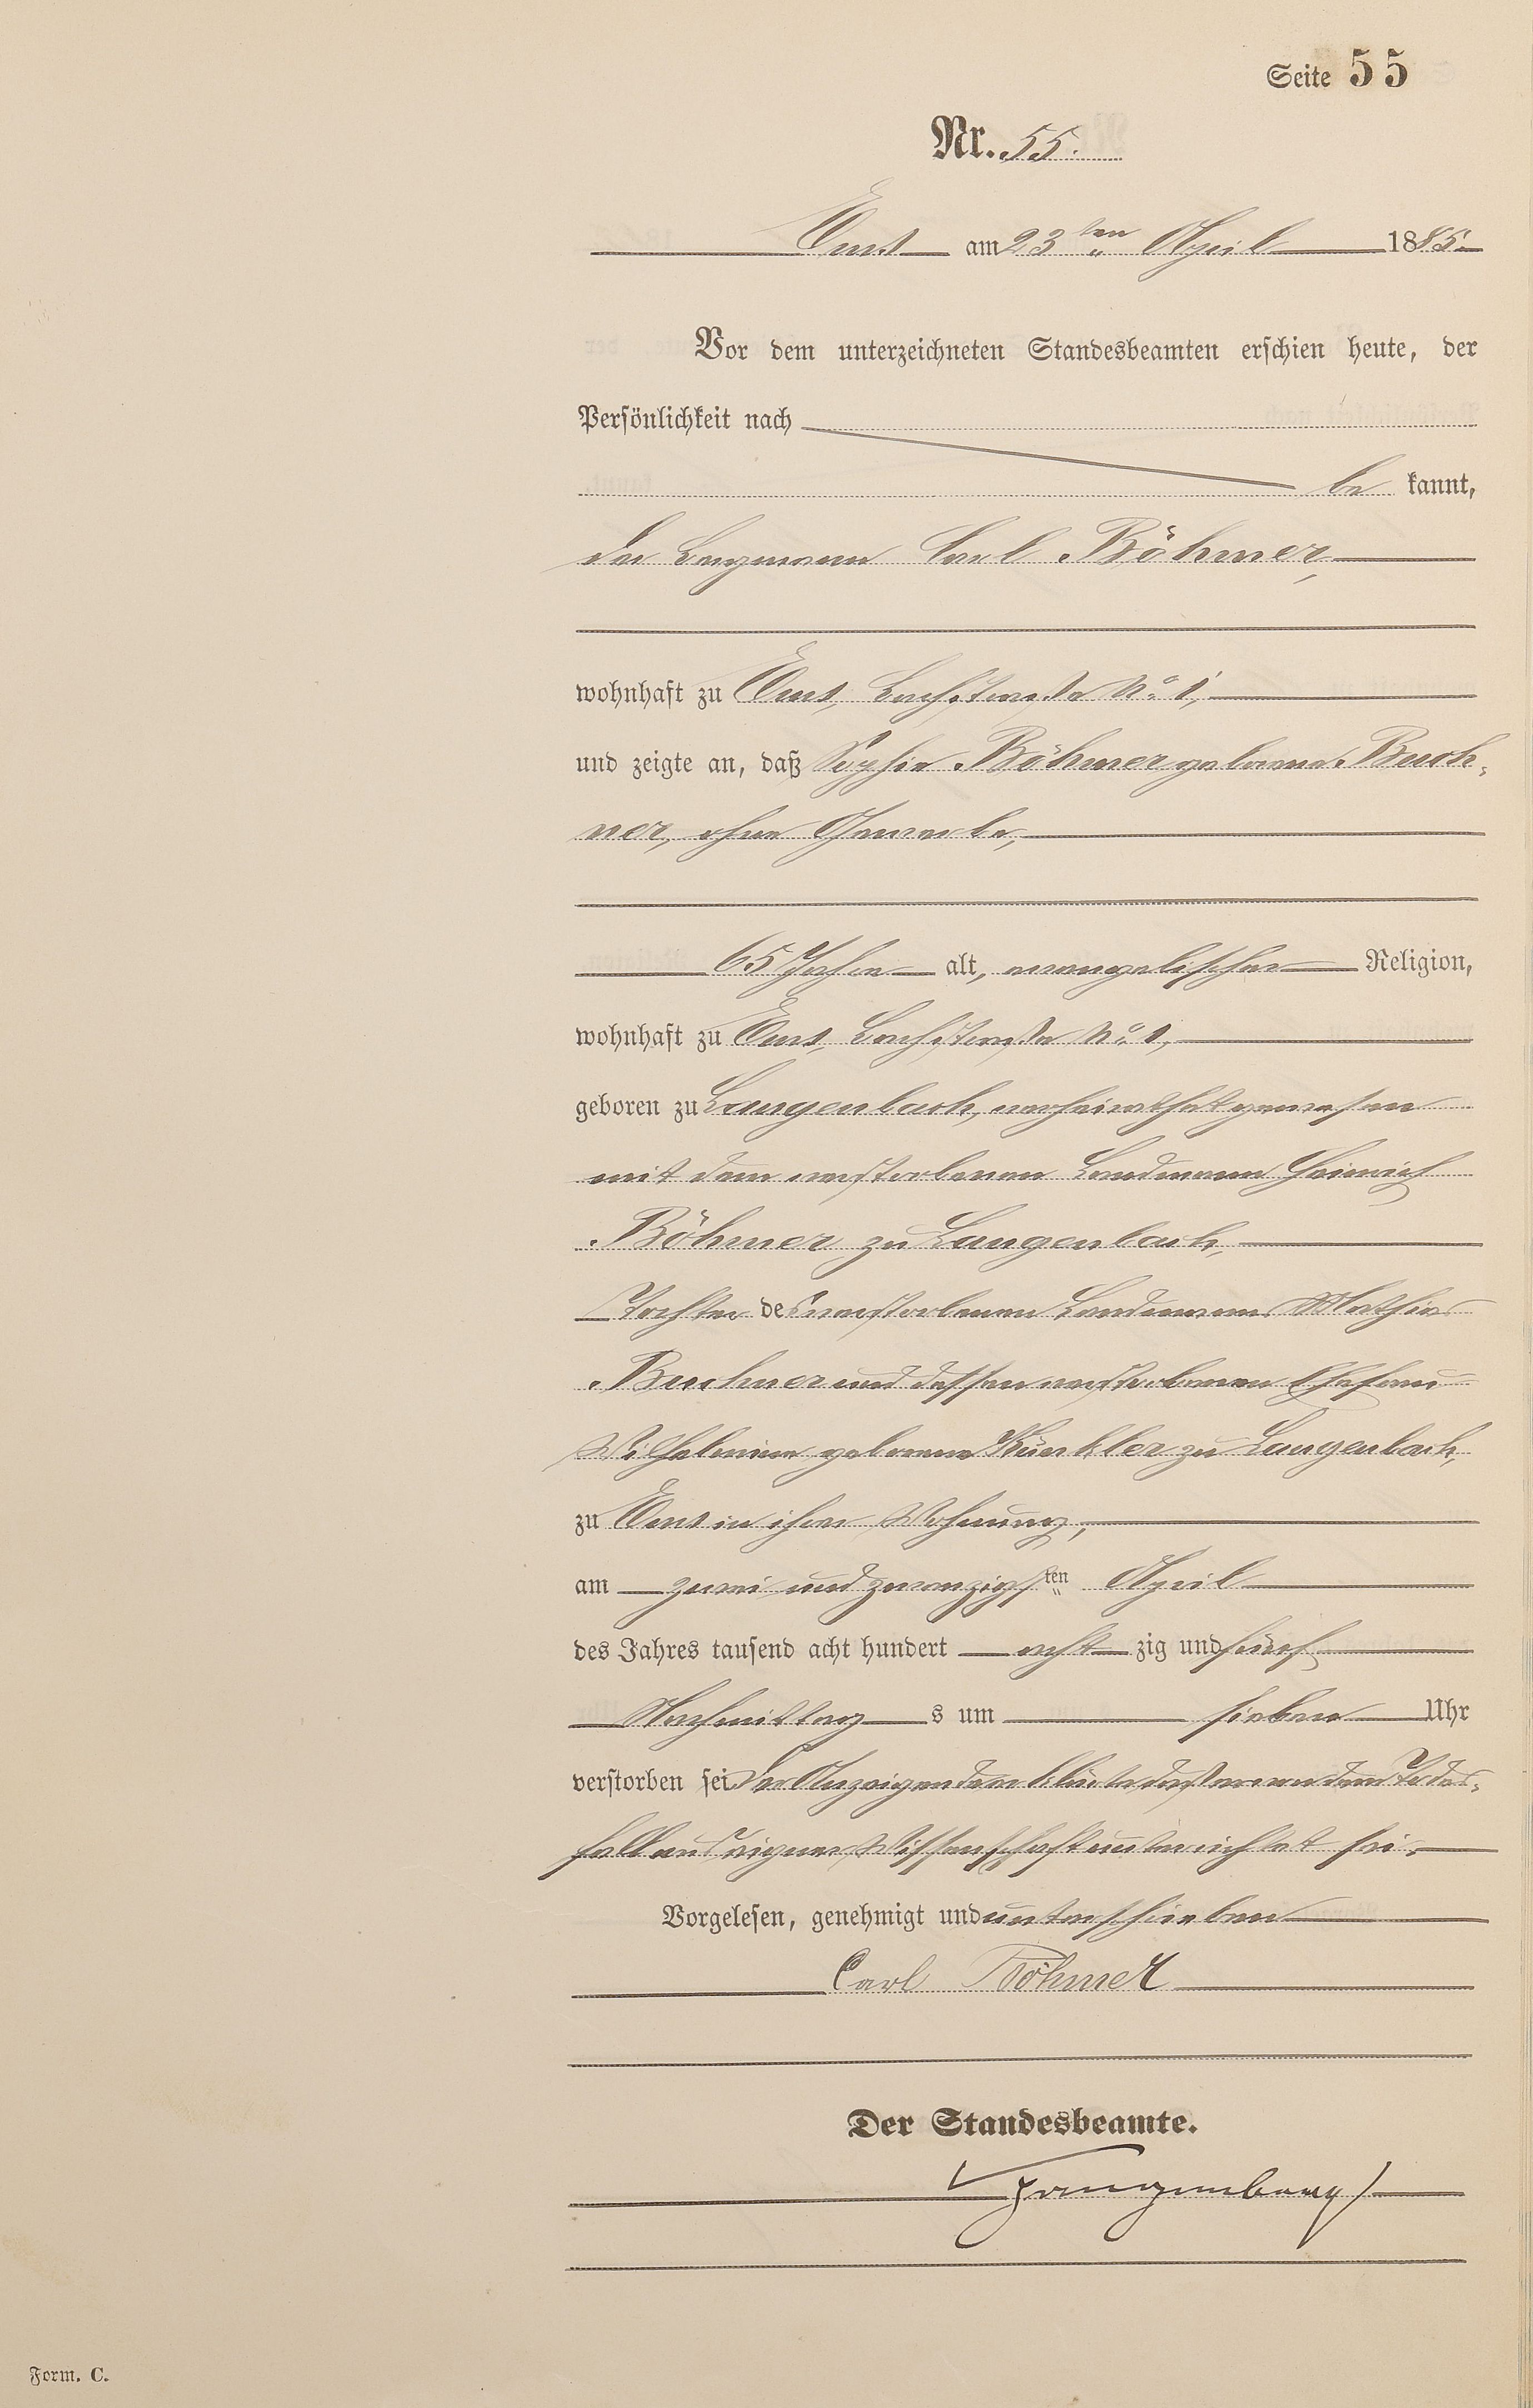 Seite 55
Nr. 55.
Ems am 23ten April 1885.
Vor dem unterzeichneten Standesbeamten erschien heute, der
Persönlichkeit nach
be kannt,
der Bergmann Carl Böhmer,
wohnhaft zu Ems, Bachstraße No. 1,
und zeigte an, daß Sophie Böhmer geborene Buch-
ner, ohne Gewerbe,
65 Jahre alt, evangelischer Religion,
wohnhaft zu Ems, Bachstraße No. 1,
geboren zu Langenbach, verheirathet gewesen
mit dem verstorbenen Landmann Heinrich
Böhmer zu Langenbach,
Tochter des verstorbenen Landmanns Mathias
Buchner und dessen verstorbenen Ehefrau
Wilhelmine geborene Künkler zu Langenbach,
zu Ems in ihrer Wohnung,
am zwei und zwanzigsten April
des Jahres tausend acht hundert acht zig und fünf
Nachmittag s um sieben Uhr
verstorben sei. Der Anzeigende erklärte, daß er von dem Todes-
fall aus eigener Wissenschaft unterrichtet sei.
Vorgelesen, genehmigt und unterschrieben
Carl Böhmer
Der Standesbeamte.
Form. C.